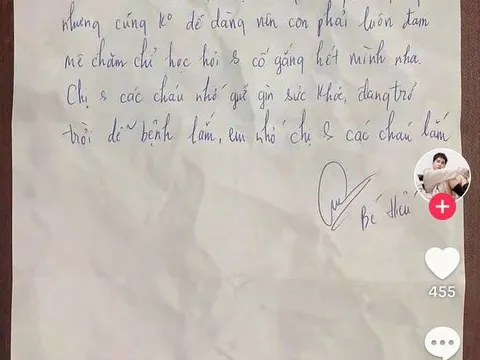 nhưng cũng k° dễ dàng nên con phải luôn đam
mê chăm chỉ học hỏi & cố gắng hết mình nha.
Chị & các cháu nhớ giữ gìn sức khỏe, đang trở
trời dễ bệnh lắm, em nhớ chị & các cháu lắm
Bé Hiếu
455